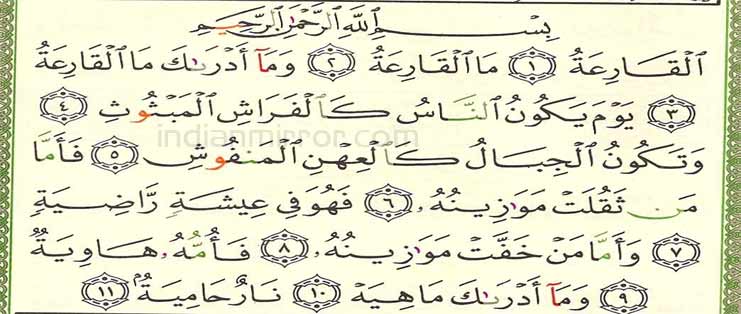 بِسْمِ ٱللَّهِ ٱلرَّحْمَٰنِ ٱلرَّحِيمِ
ٱلْقَارِعَةُ ۝١ مَا ٱلْقَارِعَةُ ۝٢ وَمَآ أَدْرَىٰكَ مَا ٱلْقَارِعَةُ
۝٣ يَوْمَ يَكُونُ ٱلنَّاسُ كَٱلْفَرَاشِ ٱلْمَبْثُوثِ ۝٤
indianmirror.com
وَتَكُونُ ٱلْجِبَالُ كَٱلْعِهْنِ ٱلْمَنفُوشِ ۝٥ فَأَمَّا
مَن ثَقُلَتْ مَوَٰزِينُهُۥ ۝٦ فَهُوَ فِى عِيشَةٍ رَّاضِيَةٍ
۝٧ وَأَمَّا مَنْ خَفَّتْ مَوَٰزِينُهُۥ ۝٨ فَأُمُّهُۥ هَاوِيَةٌ
۝٩ وَمَآ أَدْرَىٰكَ مَا هِيَهْ ۝١٠ نَارٌ حَامِيَةٌۢ ۝١١